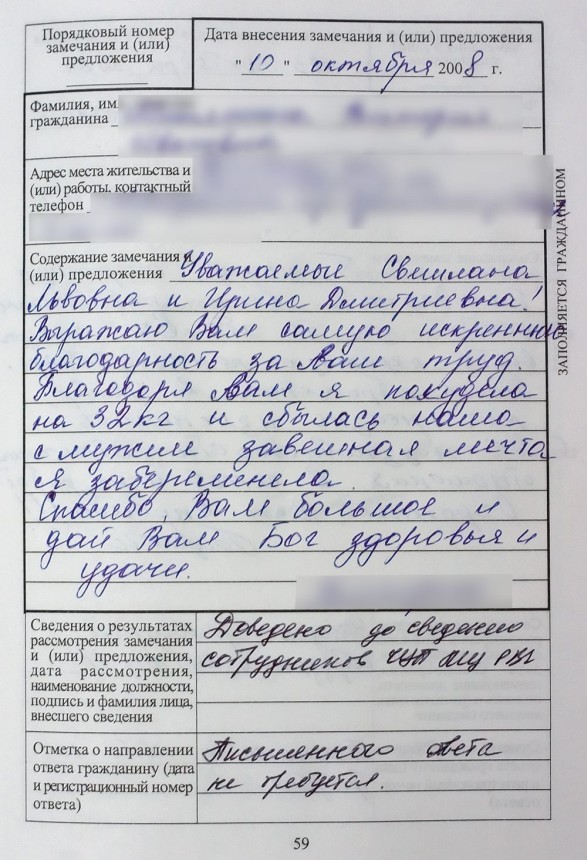 Порядковый номер
замечания и (или)
предложения
Дата внесения замечания и (или) предложения
"10" октября 2008 г.
Фамилия, им
гражданина
Адрес места жительства и
(или) работы, контактный
телефон
Содержание замечания и
(или) предложения Уважаемые Светлана
Львовна и Ирина Дмитриевна!
Выражаю Вам самую искреннюю
благодарность за Ваш труд.
Благодоря Вам я похудела
на 32 кг и сбылась наша
с мужем заветная мечта
я забеременела.
Спасибо Вам большое и
дай Вам Бог здоровья и
удачи.
ЗАПОЛНЯЕТСЯ ГРАЖДАНИНОМ
Сведения о результатах
рассмотрения замечания
и (или) предложения,
дата рассмотрения,
наименование должности,
подпись и фамилия лица,
внесшего сведения
Доведено до сведения
сотрудников
Отметка о направлении
ответа гражданину (дата
и регистрационный номер
ответа)
Письменного ответа
не требуется.
59